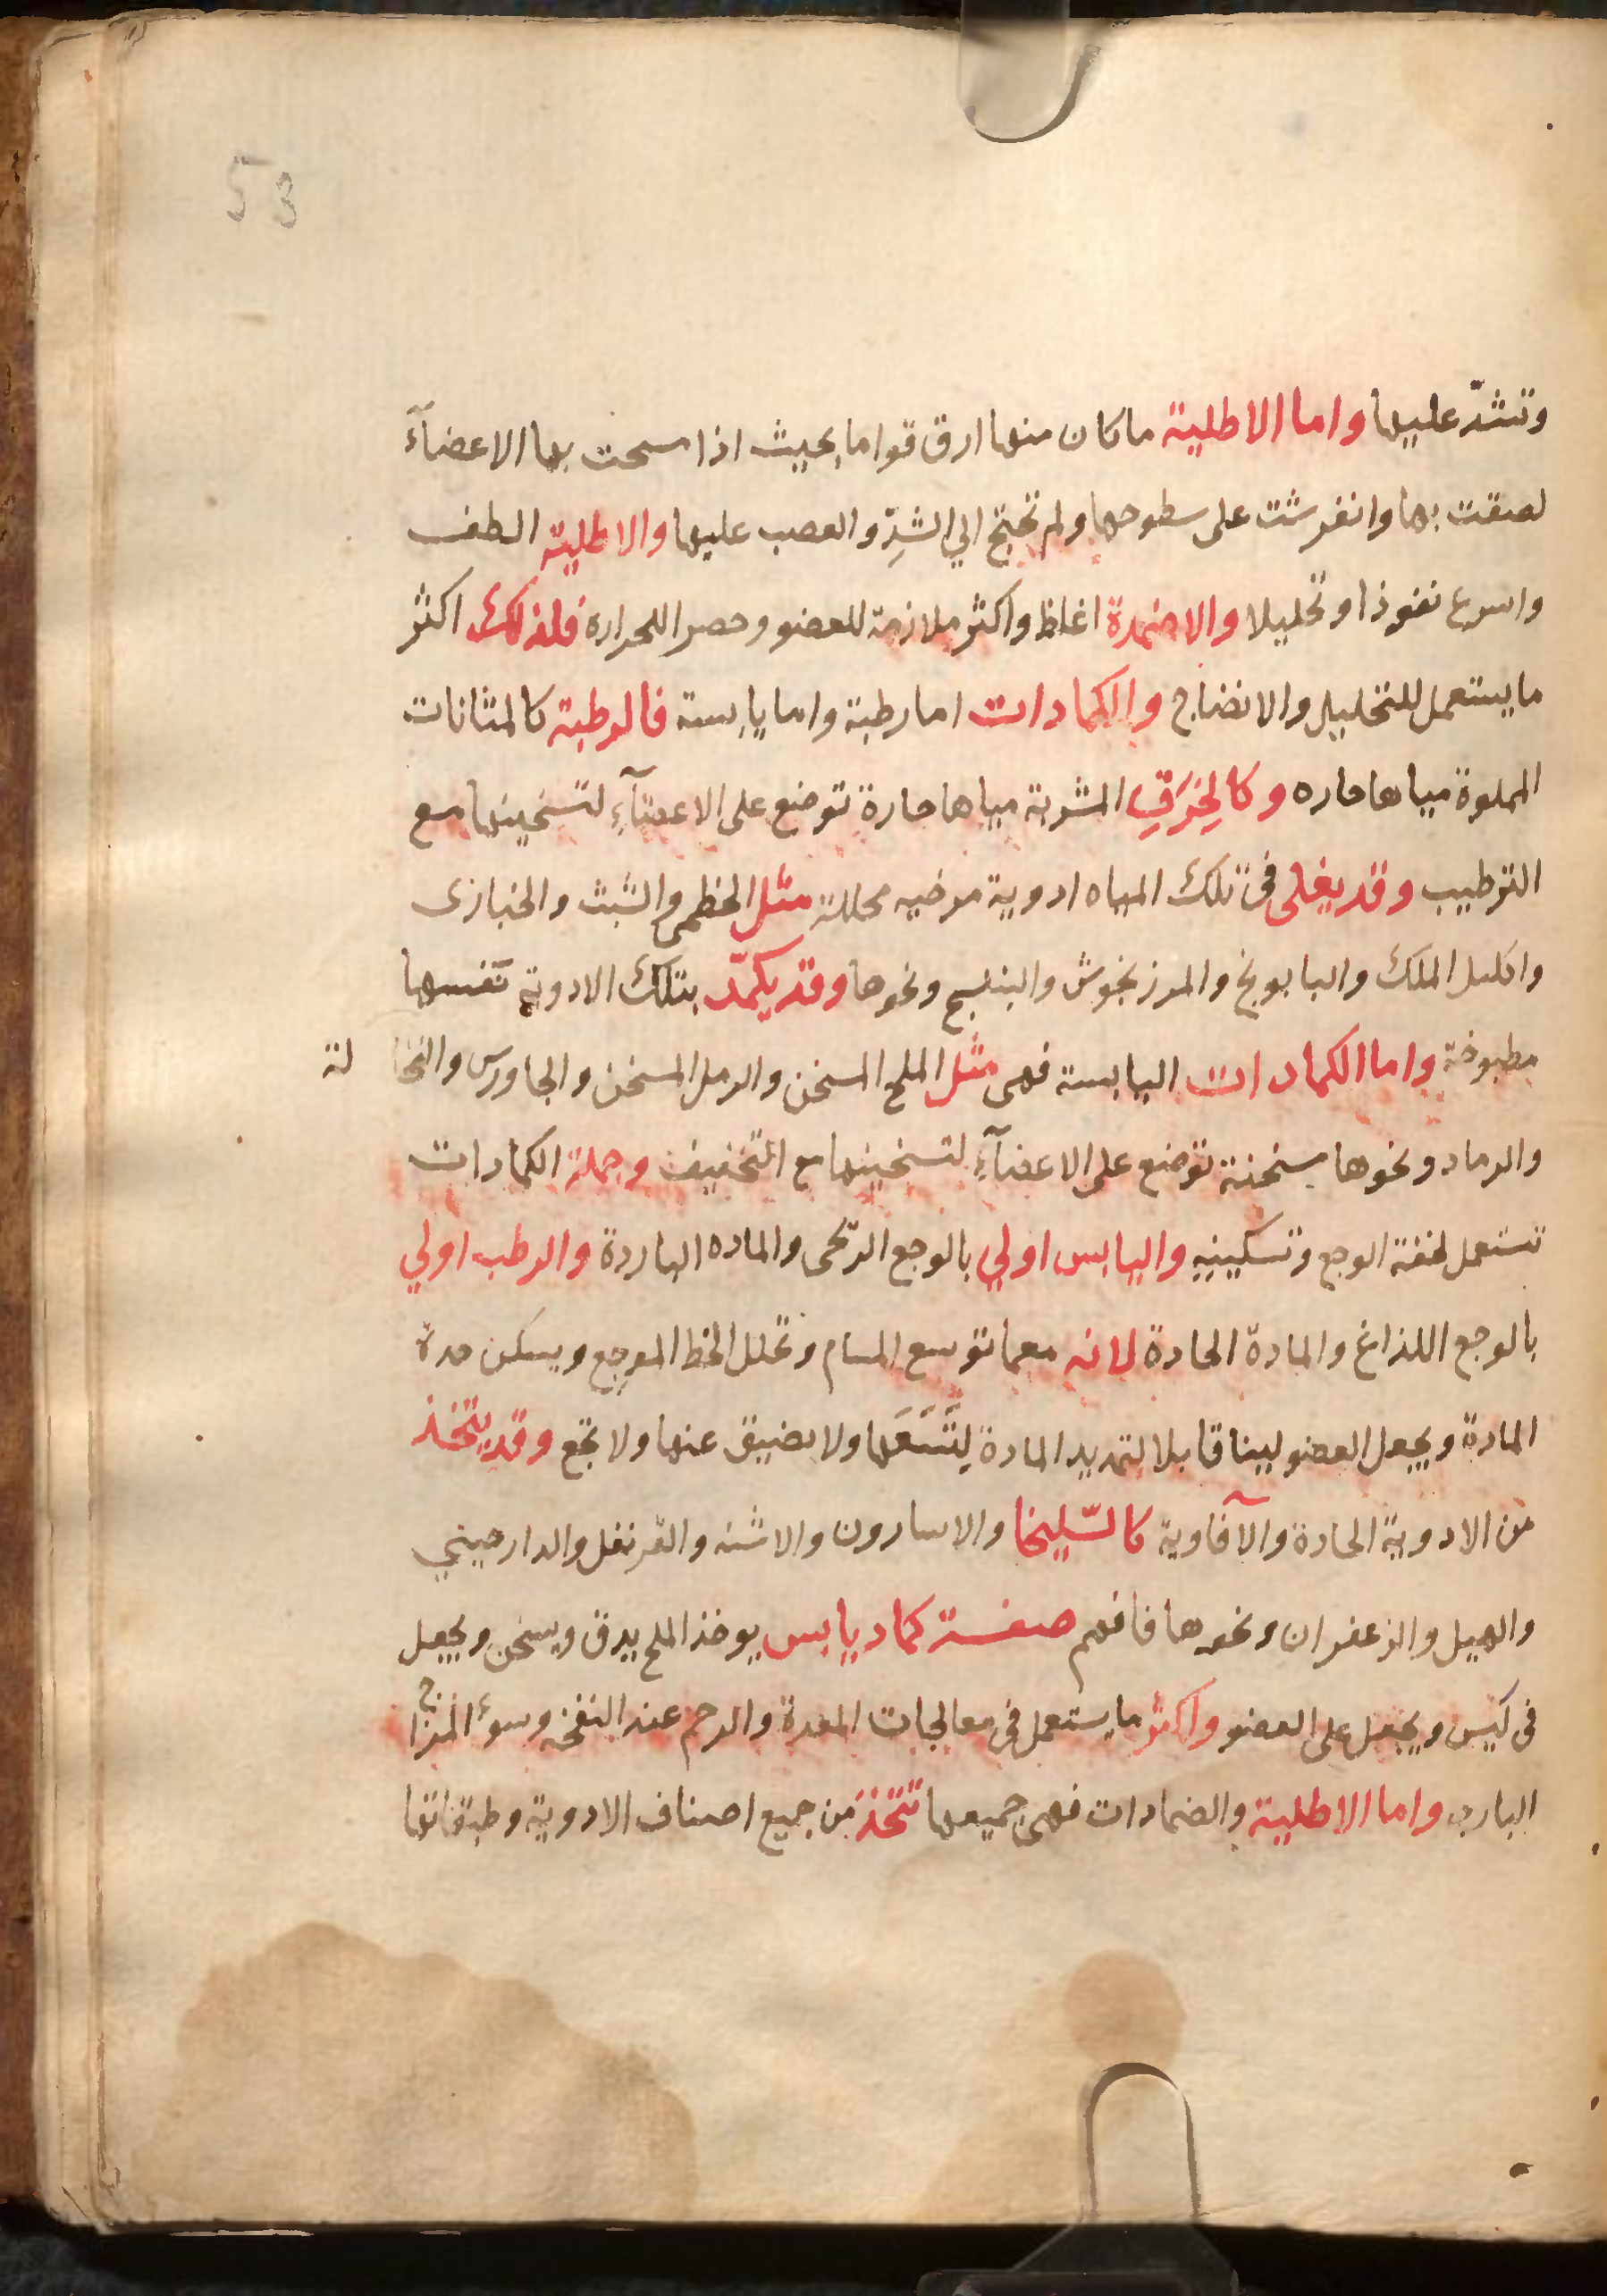 53
وتشدّ عليها واما الاطلية ماكان منها ارق قواما بحيث اذا مسحت بها الاعضآء
لصقت بها وانفرشت على سطوحها ولم تحتج الي الشدِّ والعصب عليها والاطلية الطف
واسرع نفوذا وتحليلا والاضمدة اغلظ واكثر ملازمة للعضو وحصر اللحراره فلذلك اكثر
ما يستعمل للتحليل والانضاج والكمادات اما رطبة واما يابسة فالرطبة كالمثانات
المملوة مياها حاره وكالخِرَقِ المشربة مياها حارة توضع على الاعضآءِ لتسخينها مع
الترطيب وقد يغلى فى تلك المياه ادوية مرخيه محللة مثل الخطمى والشبث والخبازى
واكليل الملك والبابونج والمرزنجوش والبنفسج ونحوها وقد يكمّد بتلك الادوية نفسها
مطبوخة واما الكمادات اليابسة فهى مثل الملح المسخن والرمل المسخن والجاورس والنخالة
والرماد ونحوها مسخنة توضع على الاعضآءِ لتسخينها مع التخفيف وجملة الكمادات
تستعمل لخفة الوجع وتسكينه واليابس اولي بالوجع الريحى والماده الباردة والرطب اولي
بالوجع اللذاغ والمادة الحادة لانه معما توسع المسام وتحلل الخلط الموجع ويسكن حدة
المادة ويجعل العضو لينا قابلا لتمديد المادة لِتَسَعَها ولا يضيق عنها ولا تجع وقد يتخذ
من الادوية الحادة والآفاوية كالسّليخا والاسارون والاشنه والقرنفل والدارصيني
والهيل والزعفران ونحوها فافهم صفة كماد يابس يوخذ الملح يدق ويسخن ويجعل
فى كيس ويجعل على العضو واكثر ما يستعمل فى معالجات المعدة والرحم عند النفخه وسوء المزاج
البارد واما الاطلية والضمادات فهى جميعها تتخذ من جميع اصناف الادوية وطبقاتها